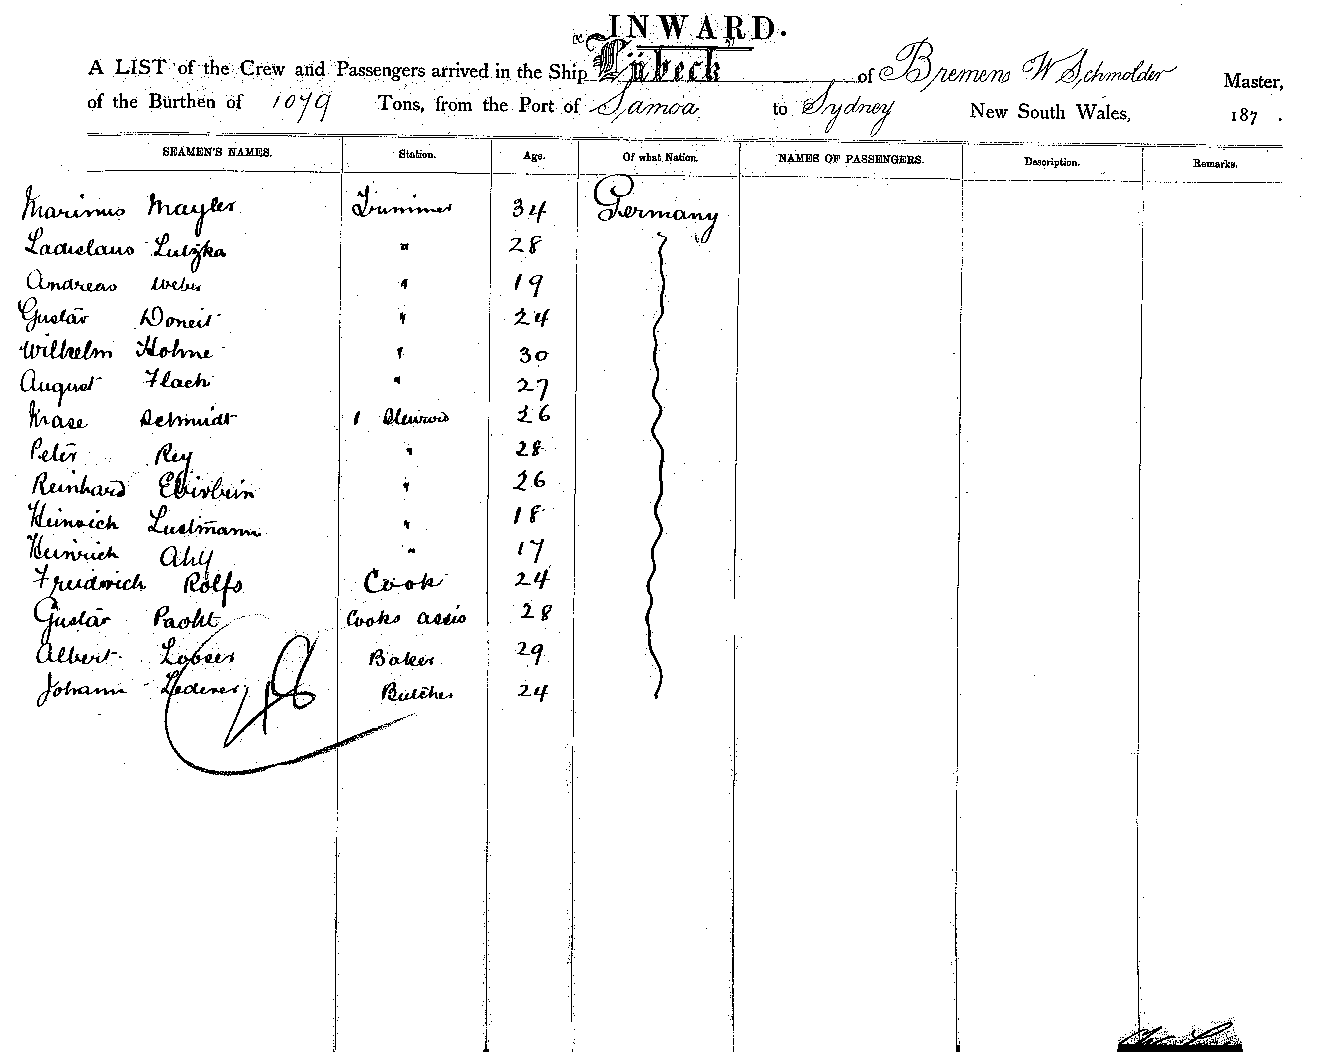 INWARD.
A LIST of the Crew and Passengers arrived in the Ship "Lübeck" of Bremens W Schmolder Master,
of the Burthen of 1079 Tons, from the Port of Samoa to Sydney New South Wales, 187 .
SEAMEN'S NAMES. Station. Age. Of what Nation. NAMES OF PASSENGERS. Description. Remarks.
Marinus Mayler Trimmer 34 Germany
Ladislaus Lutzka " 28
Andreas Weber " 19
Gustav Doneit " 24
Wilhelm Hohne " 30
August Flach " 27
Schmidt 1 Steward 26
Peter Rey " 28
Reinhard " 26
Heinrich Lustmann " 18
Heinrich " 17
Freidrich Rolfs Cook 24
Gustav Pacht Cooks assis 28
Albert Looser Baker 29
Johann Lederer Butcher 24